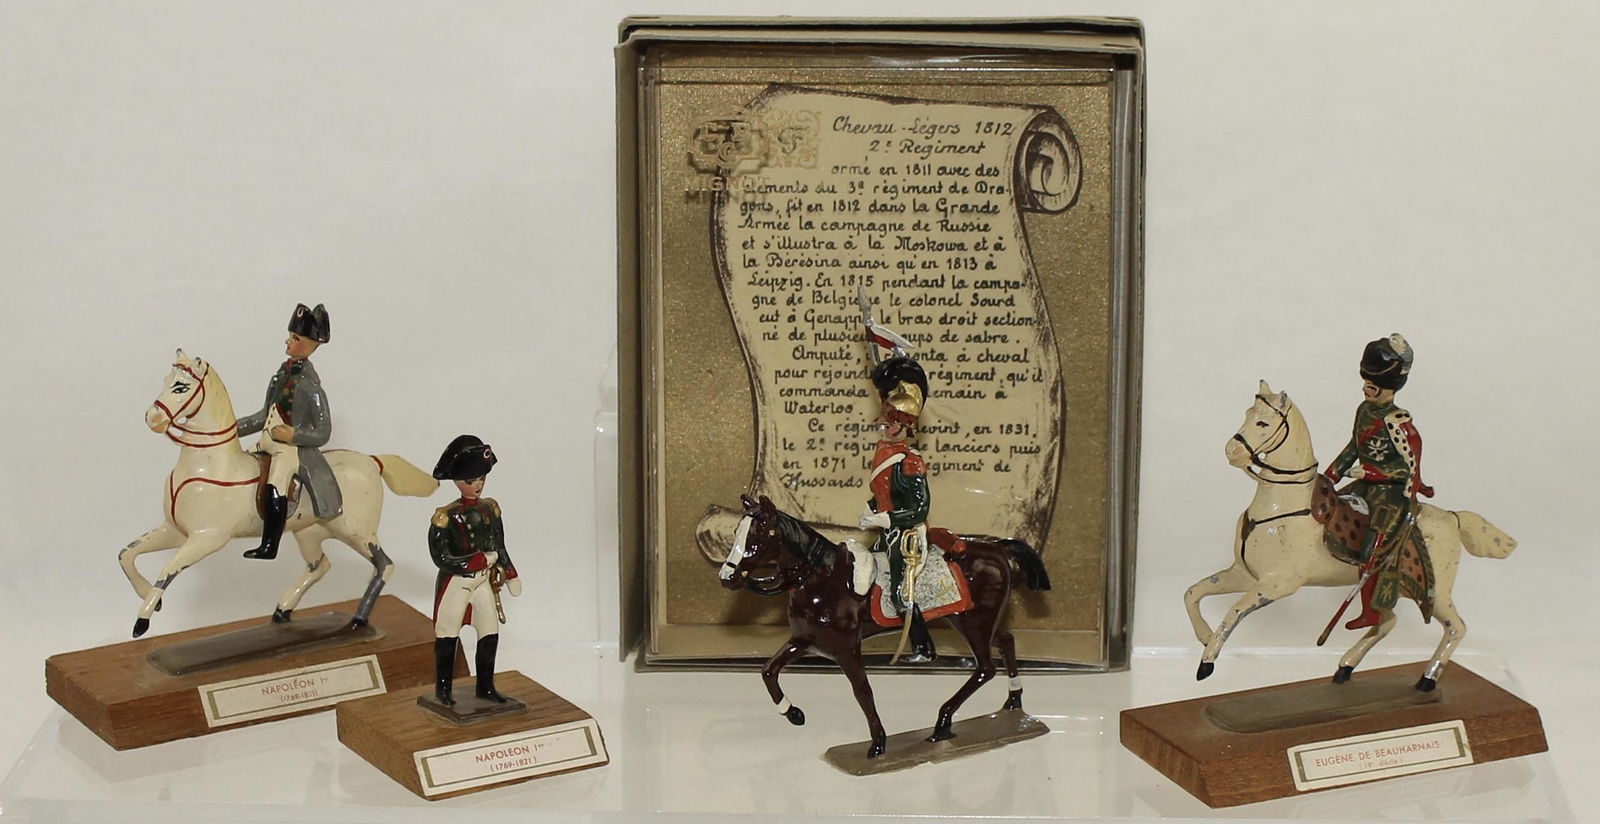 Chevau-Légers 1812
2e Régiment
ormé en 1811 avec des
éléments du 3e régiment de Dra-
gons, fit en 1812 dans la Grande
Armée la campagne de Russie
et s'illustra à la Moskowa et à
la Bérésina ainsi qu'en 1813 à
Leipzig. En 1815 pendant la campa-
gne de Belgique le colonel Sourd
eut à Genappe le bras droit section-
né de plusieu oups de sabre.
Amputé, remonta à cheval
pour rejoind régiment, qu'il
commanda emain à
Waterloo.
Ce régim devint, en 1831,
le 2e régim de lanciers puis
en 1871 le régiment de
Hussards
MIGNOT
NAPOLÉON Ier
(1769-1821)
NAPOLEON Ier
(1769-1821)
EUGÈNE DE BEAUHARNAIS
(19e siècle)